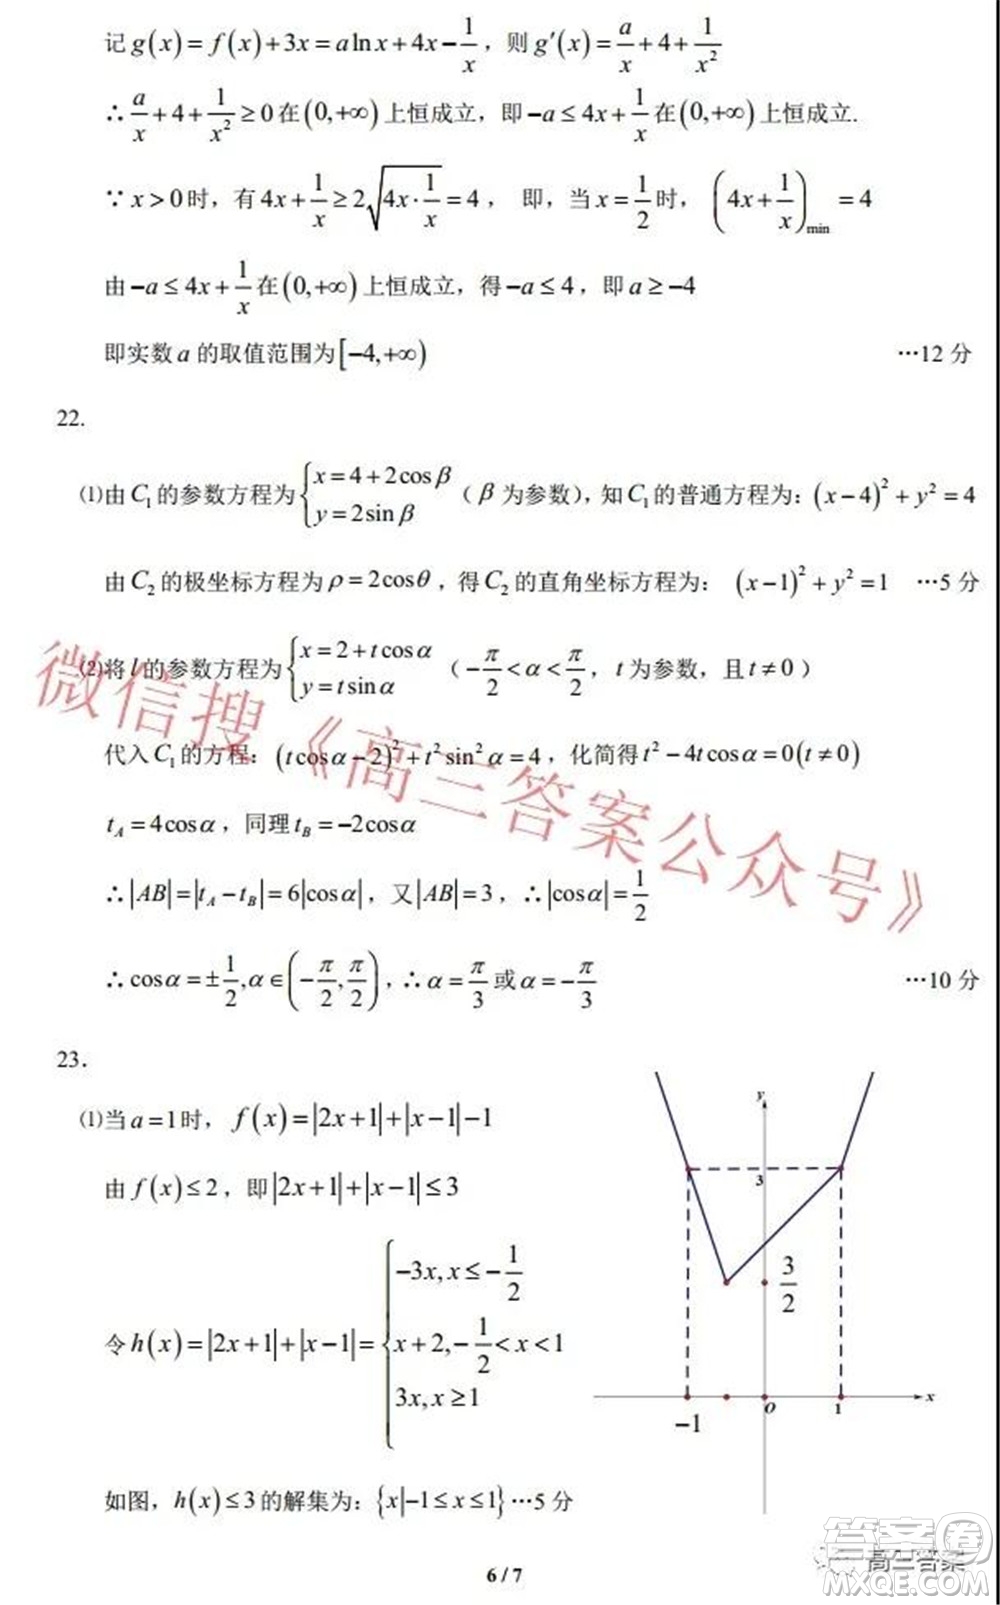 记 g(x)=f(x)+3x=alnx+4x-1/x，则 g′(x)=a/x+4+1/x²
∴ a/x+4+1/x²≥0 在(0,+∞)上恒成立，即 -a≤4x+1/x 在(0,+∞)上恒成立.
∵ x>0 时，有 4x+1/x≥2√(4x·1/x)=4， 即，当 x=1/2 时， (4x+1/x)min=4
由 -a≤4x+1/x 在(0,+∞)上恒成立，得 -a≤4，即 a≥-4
即实数 a 的取值范围为[-4,+∞) …12 分
22.
⑴由 C₁ 的参数方程为{x=4+2cosβ y=2sinβ（β 为参数），知 C₁ 的普通方程为：(x-4)²+y²=4
由 C₂ 的极坐标方程为 ρ=2cosθ，得 C₂ 的直角坐标方程为： (x-1)²+y²=1 …5 分
⑵将 l 的参数方程为{x=2+tcosα y=tsinα（-π/2<α<π/2，t 为参数，且 t≠0）
代入 C₁ 的方程：(tcosα-2)²+t²sin²α=4，化简得 t²-4tcosα=0(t≠0)
t_A=4cosα，同理 t_B=-2cosα
∴|AB|=|t_A-t_B|=6|cosα|，又|AB|=3，∴|cosα|=1/2
∴cosα=±1/2,α∈(-π/2,π/2),∴α=π/3 或 α=-π/3 …10 分
23.
⑴当 a=1 时，f(x)=|2x+1|+|x-1|-1
由 f(x)≤2，即|2x+1|+|x-1|≤3
令 h(x)=|2x+1|+|x-1|={-3x,x≤-1/2 x+2,-1/2<x<1 3x,x≥1
如图，h(x)≤3 的解集为：{x|-1≤x≤1}…5 分
y
3
3/2
-1
O
1
x
微信搜《高三答案公众号》
6 / 7
高三答案
答案圈
MXQE.COM